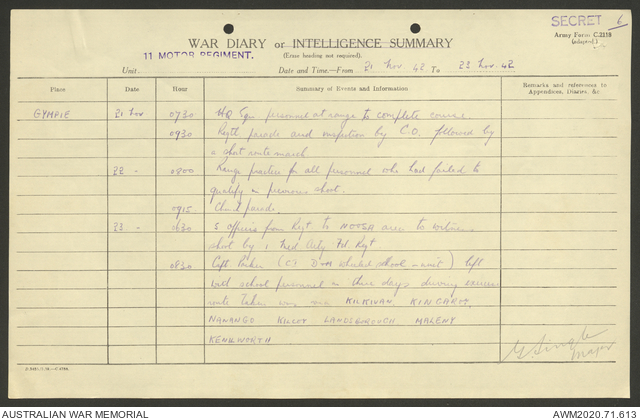 SECRET 6
Army Form C.2118
(adapted.)
WAR DIARY or INTELLIGENCE SUMMARY
11 MOTOR REGIMENT.
(Erase heading not required).
Unit. Date and Time.—From 21 Nov 42 To 23 Nov. 42
Place Date Hour Summary of Events and Information Remarks and references to Appendices, Diaries, &c
GYMPIE 21 Nov 0730 HQ Sqn personnel at range to complete course.
0930 Regtl parade and inspection by C.O. followed by
a short route march
22 - 0800 Range practice for all personnel who had failed to
qualify in previous shoot.
0915 Church parade.
23 - 0630 5 officers from Regt to area to witness
shoot by 1 Med Arty Fd. Regt
0830 Capt Parker (C.I. D & M wheeled school - unit) left
with school personnel on three days driving exercise
route taken was via KILKIVAN, KINGAROY,
NANANGO KILCOY LANDSBOROUGH MALENY
KENILWORTH.
Major
AUSTRALIAN WAR MEMORIAL AWM2020.71.613